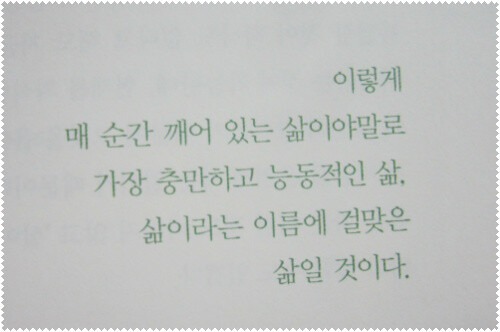 이렇게
매 순간 깨어 있는 삶이야말로
가장 충만하고 능동적인 삶,
삶이라는 이름에 걸맞은
삶일 것이다.